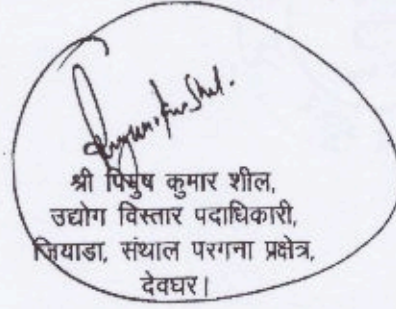 श्री पियुष कुमार शील,
उद्योग विस्तार पदाधिकारी,
जियाडा, संथाल परगना प्रक्षेत्र,
देवघर।